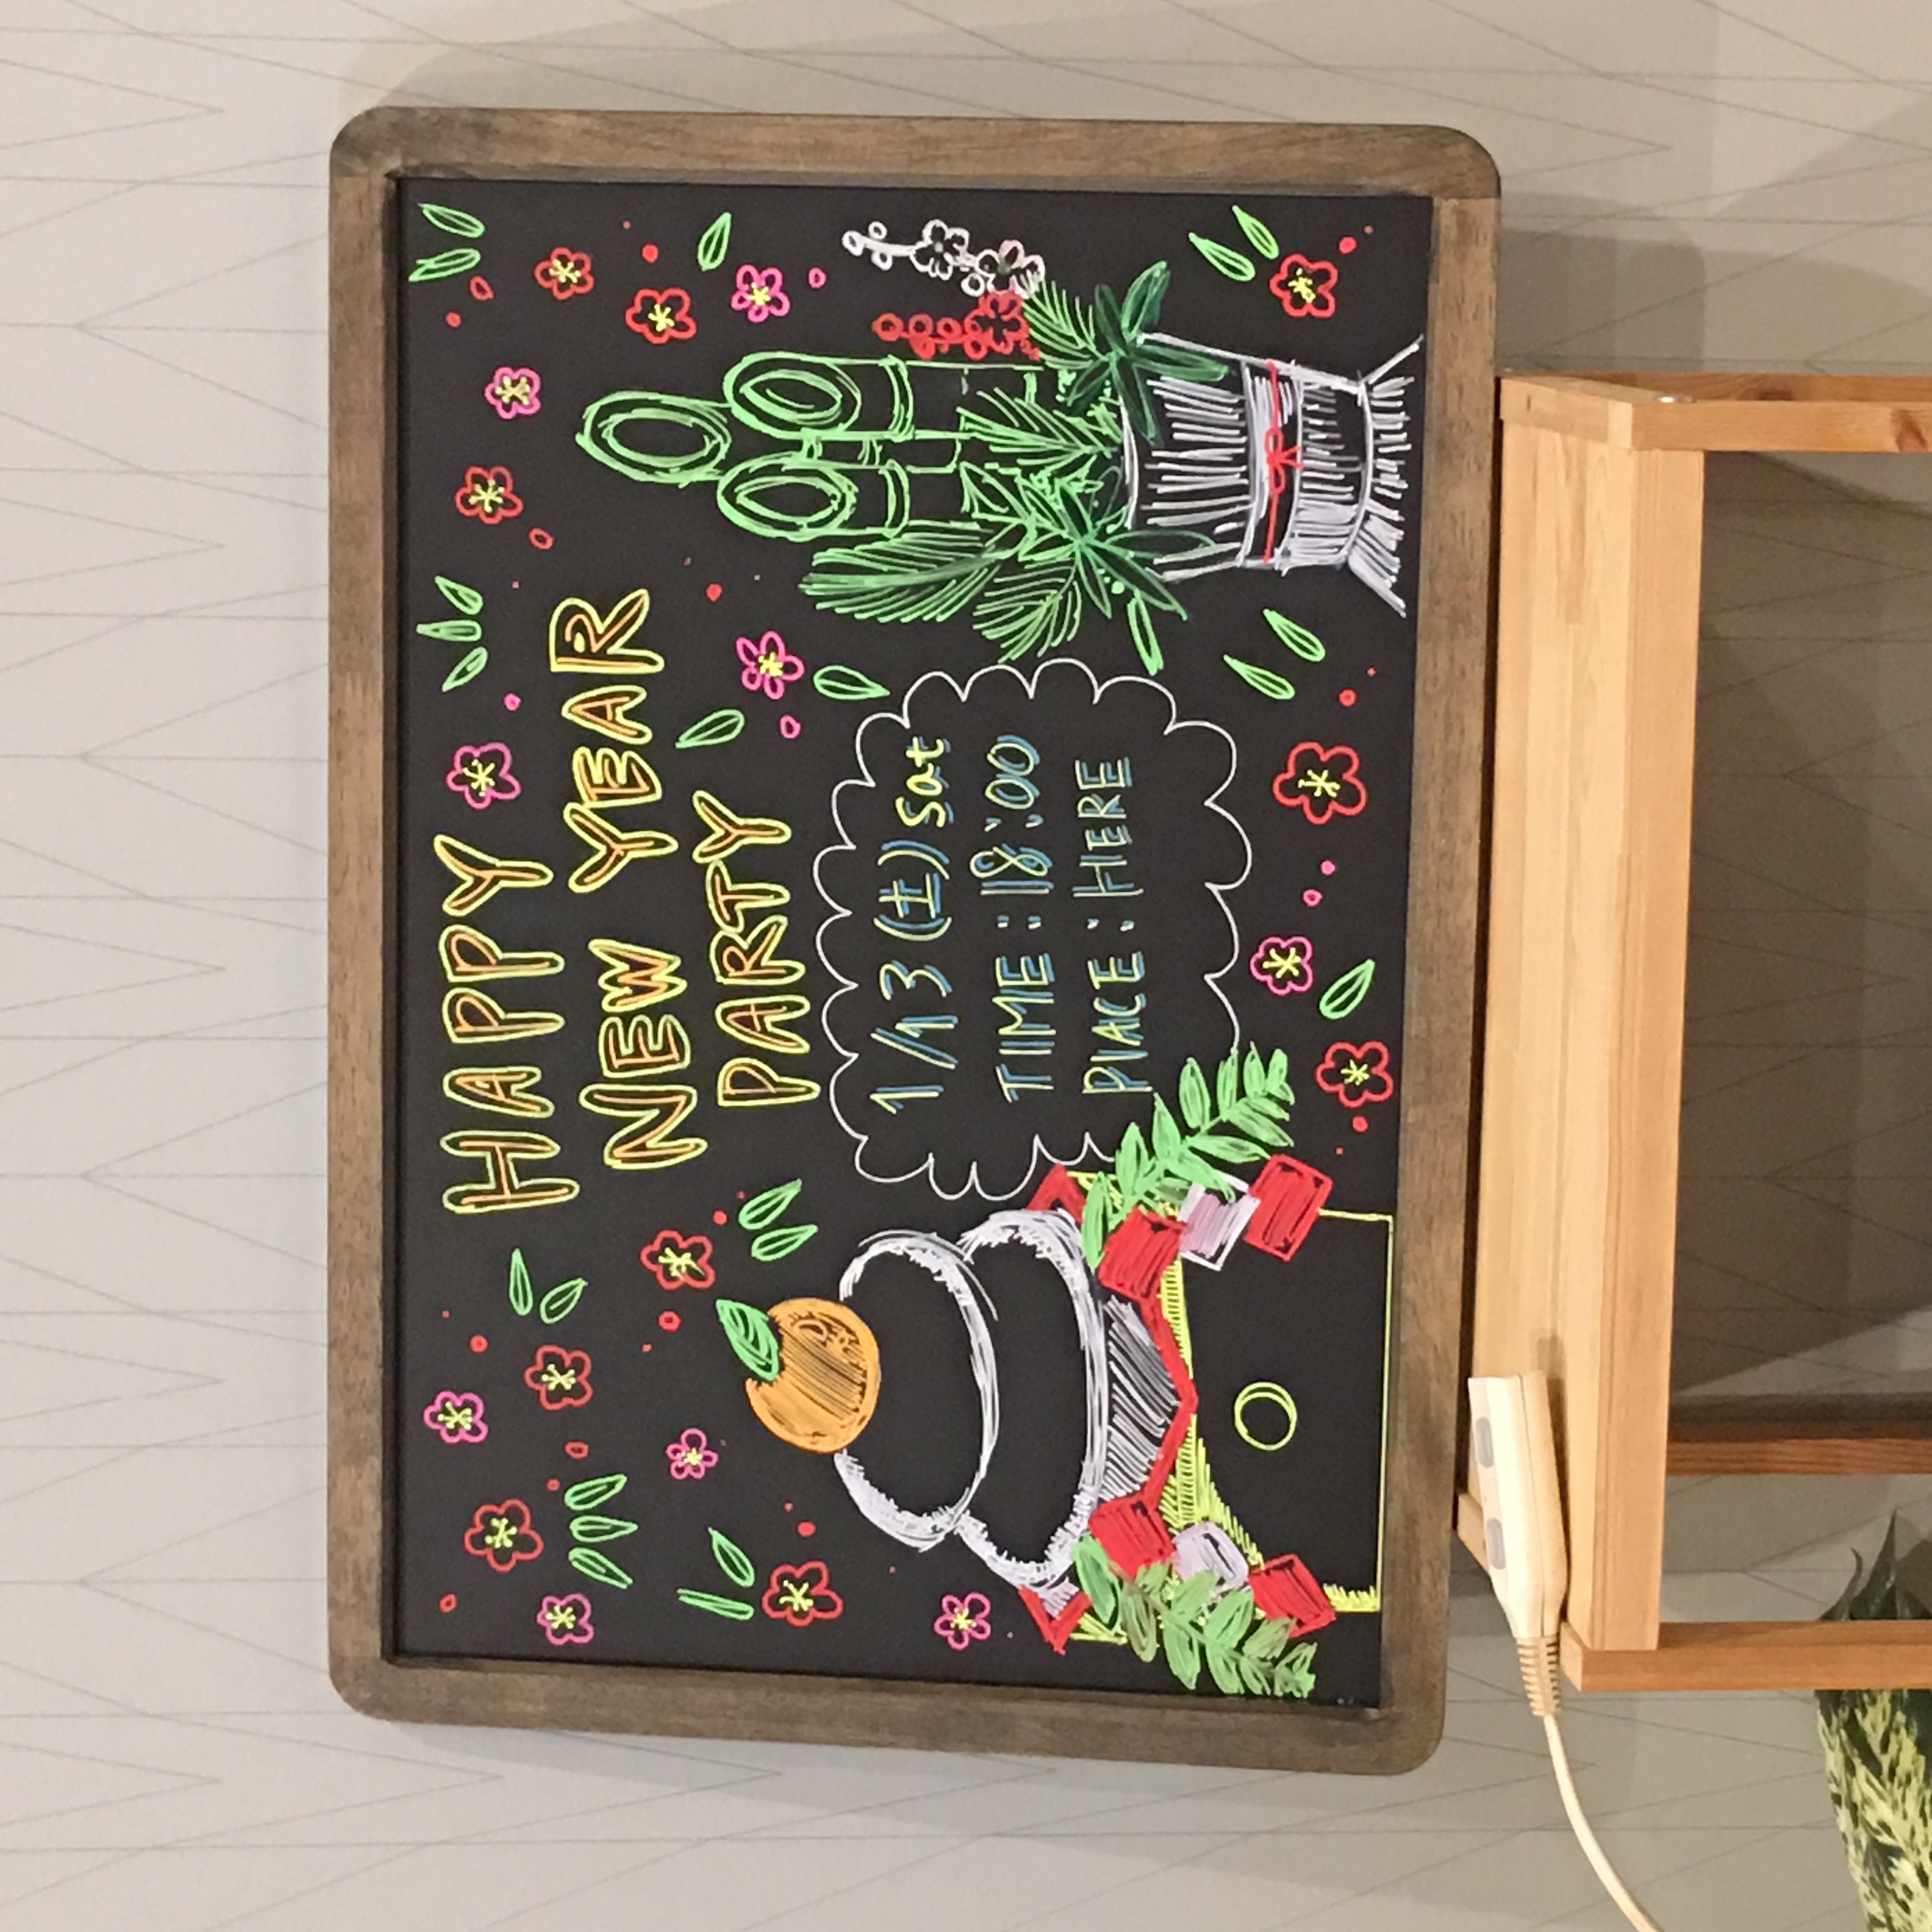 HAPPY
NEW YEAR
PARTY
1/13(土)sat
TIME:18:00
PlACE:HERE